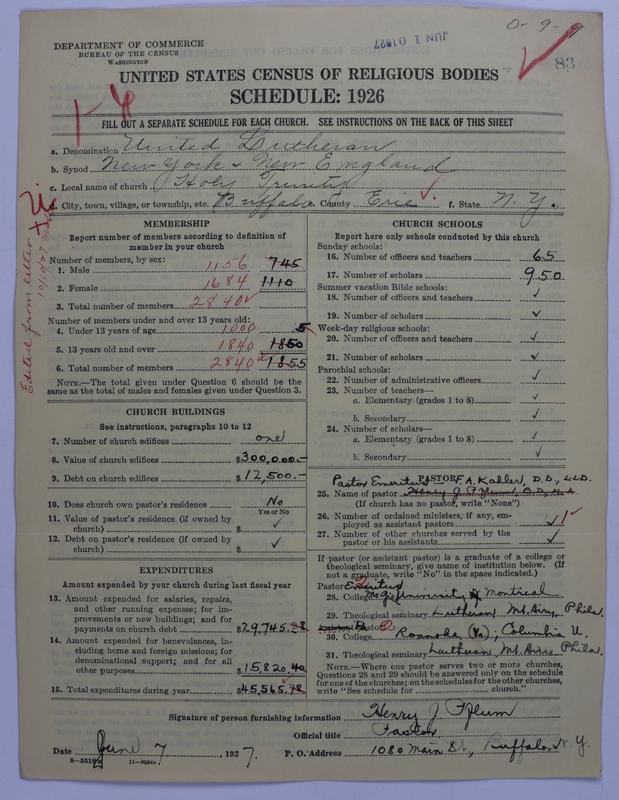 0-9-9
JUN 10 1927
83
DEPARTMENT OF COMMERCE
BUREAU OF THE CENSUS
WASHINGTON
UNITED STATES CENSUS OF RELIGIOUS BODIES
SCHEDULE: 1926
1-4
FILL OUT A SEPARATE SCHEDULE FOR EACH CHURCH. SEE INSTRUCTIONS ON THE BACK OF THIS SHEET
a. Denomination United Lutheran
b. Synod New York & New England
c. Local name of church Holy Trinity
d. City, town, village, or township, etc. Buffalo e. County Erie f. State N. Y.
Edited from letter 10/10/27
MEMBERSHIP
Report number of members according to definition of
member in your church
Number of members, by sex:
1. Male 1156 745
2. Female 1684 1110
3. Total number of members 2840
Number of members under and over 13 years old:
4. Under 13 years of age 1000 5
5. 13 years old and over 1840 1850
6. Total number of members 2840 1855
NOTE.—The total given under Question 6 should be the
same as the total of males and females given under Question 3.
CHURCH BUILDINGS
See instructions, paragraphs 10 to 12
7. Number of church edifices one
8. Value of church edifices $300,000.-
9. Debt on church edifices $12,500.-
10. Does church own pastor's residence No
Yes or No
11. Value of pastor's residence (if owned by
church) $ ✓
12. Debt on pastor's residence (if owned by
church) $ ✓
EXPENDITURES
Amount expended by your church during last fiscal year
13. Amount expended for salaries, repairs,
and other running expenses; for im-
provements or new buildings; and for
payments on church debt $29,745.38
14. Amount expended for benevolences, in-
cluding home and foreign missions; for
denominational support; and for all
other purposes $15,820.40
15. Total expenditures during year $45,565.78
CHURCH SCHOOLS
Report here only schools conducted by this church
Sunday schools:
16. Number of officers and teachers 65
17. Number of scholars 950
Summer vacation Bible schools:
18. Number of officers and teachers ✓
19. Number of scholars ✓
Week-day religious schools:
20. Number of officers and teachers ✓
21. Number of scholars ✓
Parochial schools:
22. Number of administrative officers ✓
23. Number of teachers—
a. Elementary (grades 1 to 8) ✓
b. Secondary ✓
24. Number of scholars—
a. Elementary (grades 1 to 8) ✓
b. Secondary ✓
PASTOR
Pastor Emeritus F. A. Kahler, D.D., LL.D.
25. Name of pastor Henry J. Pflum
(If church has no pastor, write "None")
26. Number of ordained ministers, if any, em-
ployed as assistant pastors ✓ 1
27. Number of other churches served by the
pastor or his assistants ✓
If pastor (or assistant pastor) is a graduate of a college or
theological seminary, give name of institution below. (If
not a graduate, write "No" in the space indicated.)
Pastor Emeritus
28. College McGill University Montreal
29. Theological seminary Lutheran Mt. Airy, Phila.
Pastor
30. College Roanoke (Va), Columbia U.
31. Theological seminary Lutheran Mt. Airy, Phila.
NOTE.—Where one pastor serves two or more churches,
Questions 28 and 29 should be answered only on the schedule
for one of the churches; on the schedules for the other churches,
write "See schedule for church."
Signature of person furnishing information Henry J. Pflum
Official title Pastor
Date June 7, 1927. P. O. Address 1080 Main St., Buffalo, N.Y.